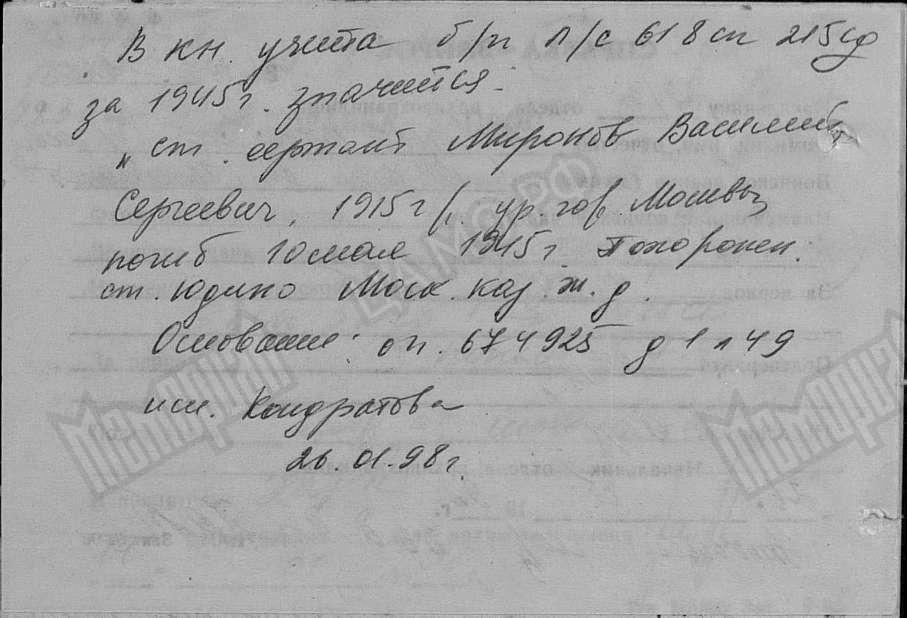 В кн. учета б/п л/с 618 сп 215 сд
за 1945 г. значится:
„ ст. сержант Миронов Василий
Сергеевич, 1915 г/р, ур. гор. Москвы,
погиб 10 мая 1945 г. Похоронен:
ст. Юдино Моск. каз. ж. д.
Основание: оп. 674925 д 1 л 49
исп. Кондратова
26.01.98 г.
ЦАМО.РФ
Мемориал
Мемориал
Начальник отде
19 г.